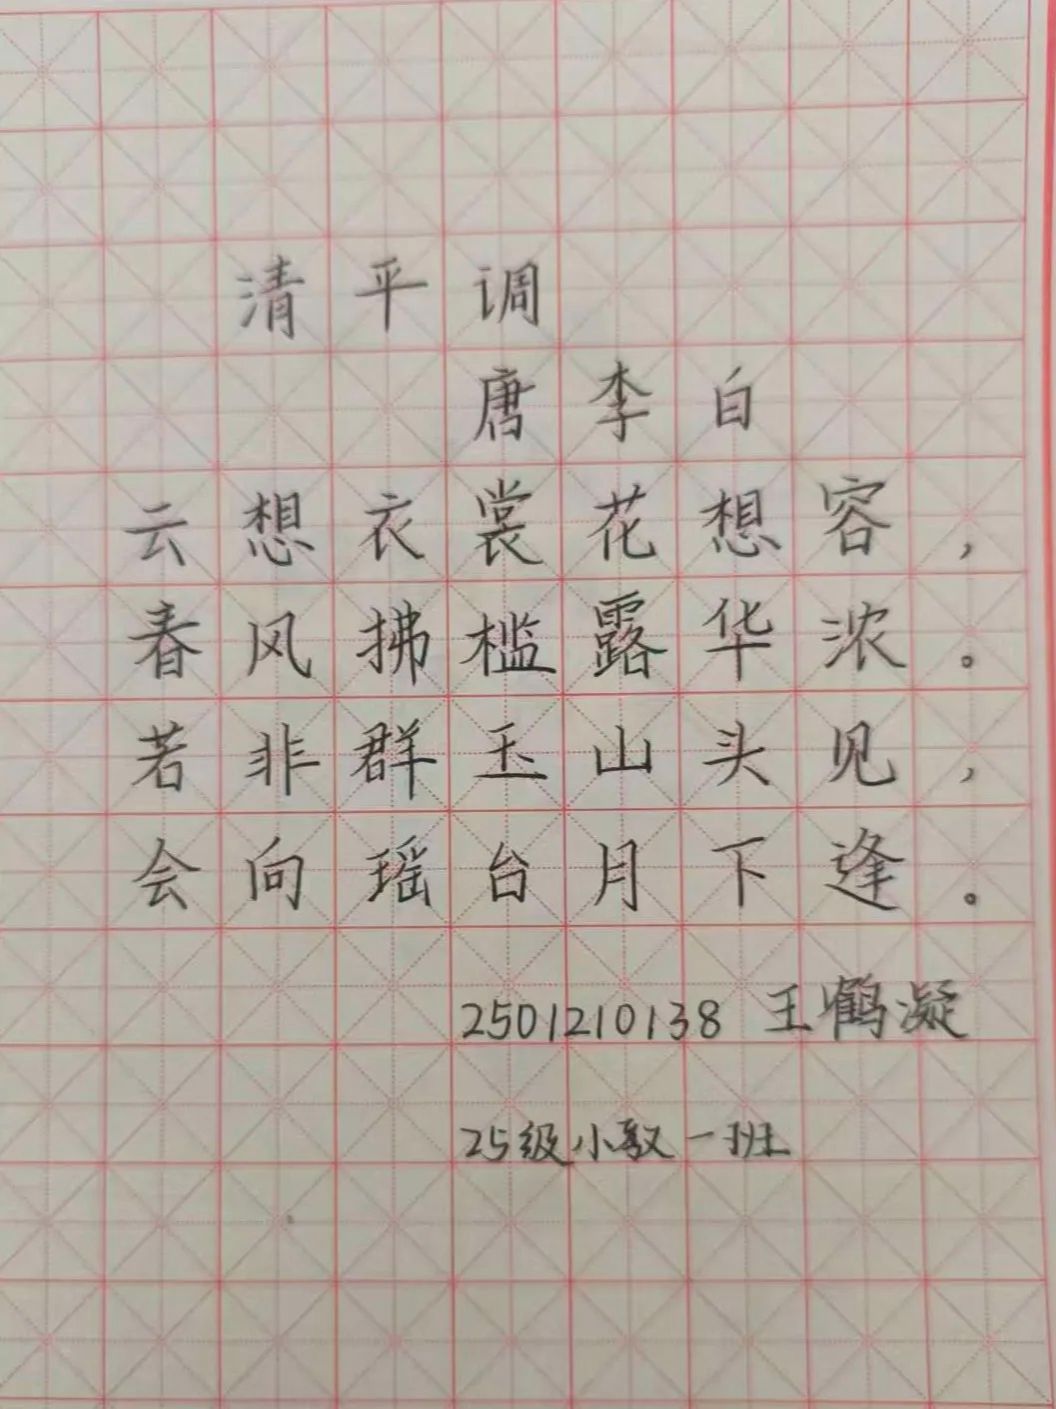 清平调
唐李白
云想衣裳花想容，
春风拂槛露华浓。
若非群玉山头见，
会向瑶台月下逢。
2501210138 王鹤凝
25级小驭一班